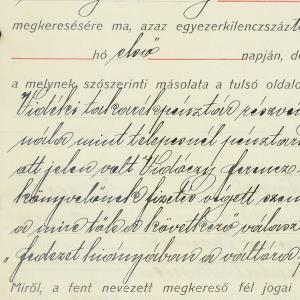 megkeresésére ma, azaz egyezerkilenczszázt
hó első napján, de
a melynek szószerinti másolata a tulsó oldalo
Vidéki takarékpénztár részvén
nála mint telepesnél pénztár
ott jelen volt Vidóczy ferencz
könyvelőnek fizetés végett szem
a mire tőle a következő válasz
„fedezet hiányában a váltóra
Miről, a fent nevezett megkereső fél jogai